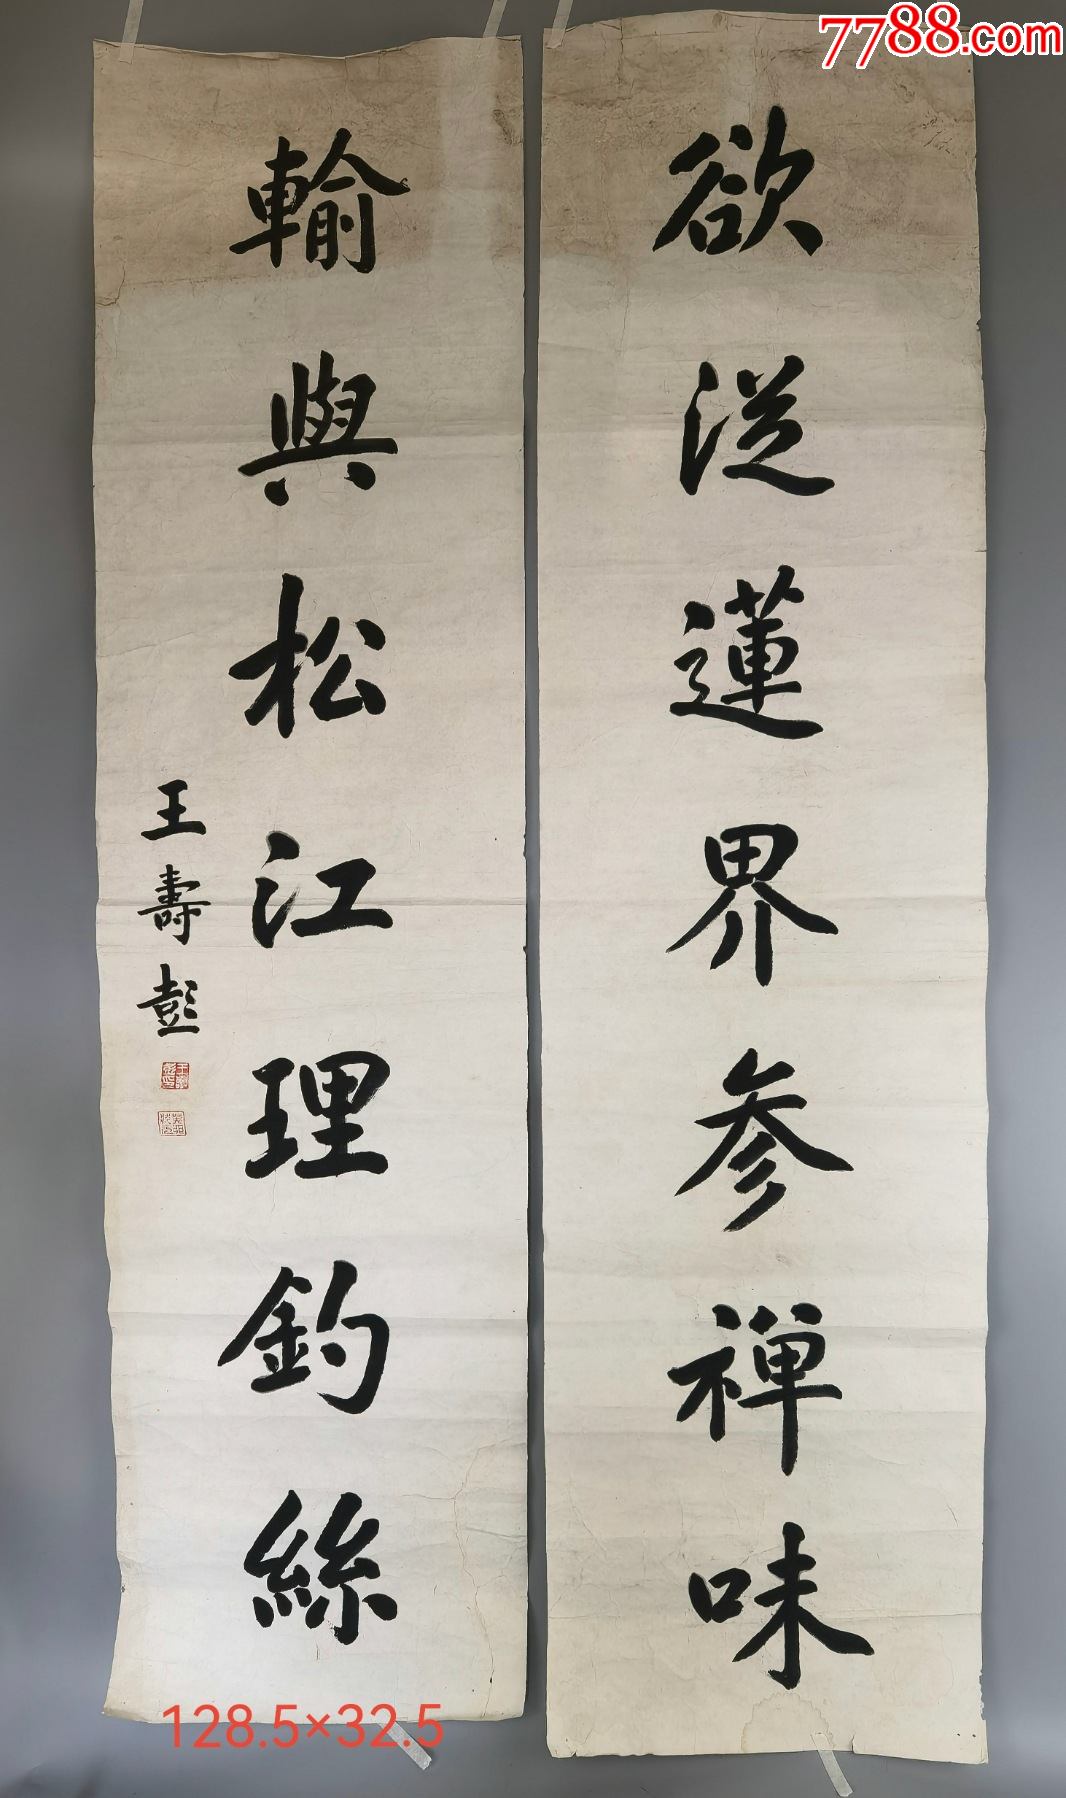 欲從蓮界參禪味
輸與松江理釣絲
王壽彭
7788.com
128.5×32.5